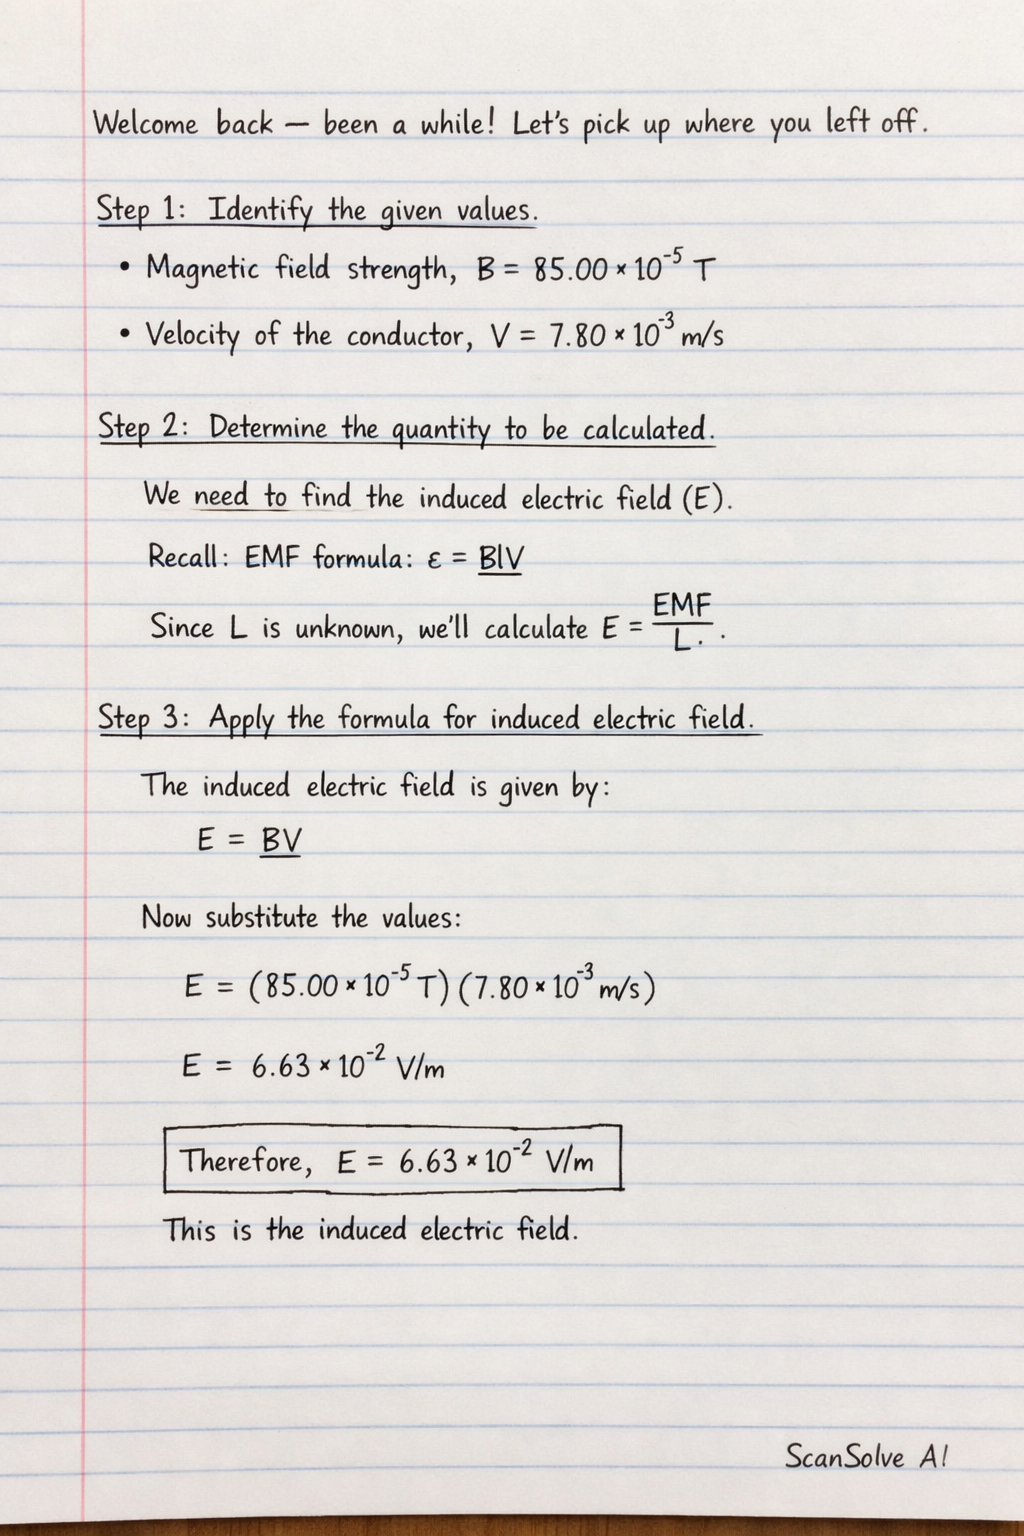 Welcome back — been a while! Let's pick up where you left off.
Step 1: Identify the given values.
• Magnetic field strength, B = 85.00 × 10⁻⁵ T
• Velocity of the conductor, V = 7.80 × 10⁻³ m/s
Step 2: Determine the quantity to be calculated.
We need to find the induced electric field (E).
Recall: EMF formula: ε = BlV
Since L is unknown, we'll calculate E = EMF/L. .
Step 3: Apply the formula for induced electric field.
The induced electric field is given by:
E = BV
Now substitute the values:
E = (85.00 × 10⁻⁵ T) (7.80 × 10⁻³ m/s)
E = 6.63 × 10⁻² V/m
Therefore, E = 6.63 × 10⁻² V/m
This is the induced electric field.
ScanSolve AI